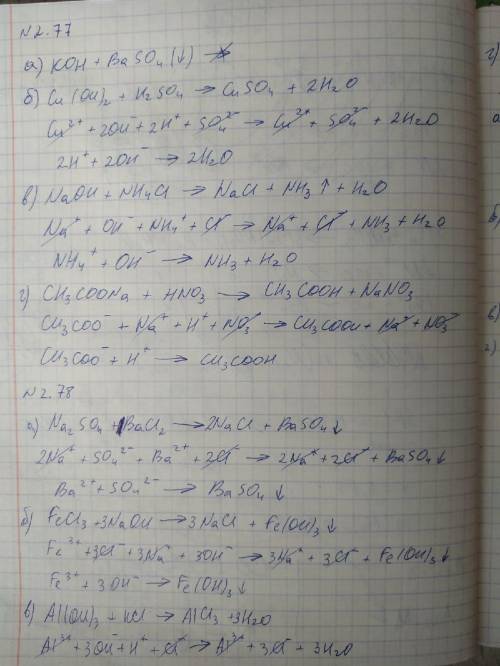 N2.77
а) KOH + BaSO₄ (↓) ↛
б) Cu(OH)₂ + H₂SO₄ → CuSO₄ + 2H₂O
Cu²⁺ + 2OH⁻ + 2H⁺ + SO₄²⁻ → Cu²⁺ + SO₄²⁻ + 2H₂O
2H⁺ + 2OH⁻ → 2H₂O
в) NaOH + NH₄Cl → NaCl + NH₃↑ + H₂O
Na⁺ + OH⁻ + NH₄⁺ + Cl⁻ → Na⁺ + Cl⁻ + NH₃ + H₂O
NH₄⁺ + OH⁻ → NH₃ + H₂O
г) CH₃COONa + HNO₃ → CH₃COOH + NaNO₃
CH₃COO⁻ + Na⁺ + H⁺ + NO₃⁻ → CH₃COOH + Na⁺ + NO₃⁻
CH₃COO⁻ + H⁺ → CH₃COOH
N2.78
а) Na₂SO₄ + BaCl₂ → 2NaCl + BaSO₄↓
2Na⁺ + SO₄²⁻ + Ba²⁺ + 2Cl⁻ → 2Na⁺ + 2Cl⁻ + BaSO₄↓
Ba²⁺ + SO₄²⁻ → BaSO₄↓
б) FeCl₃ + 3NaOH → 3NaCl + Fe(OH)₃↓
Fe³⁺ + 3Cl⁻ + 3Na⁺ + 3OH⁻ → 3Na⁺ + 3Cl⁻ + Fe(OH)₃↓
Fe³⁺ + 3OH⁻ → Fe(OH)₃↓
в) Al(OH)₃ + HCl → AlCl₃ + 3H₂O
Al³⁺ + 3OH⁻ + H⁺ + Cl⁻ → Al³⁺ + 3Cl⁻ + 3H₂O